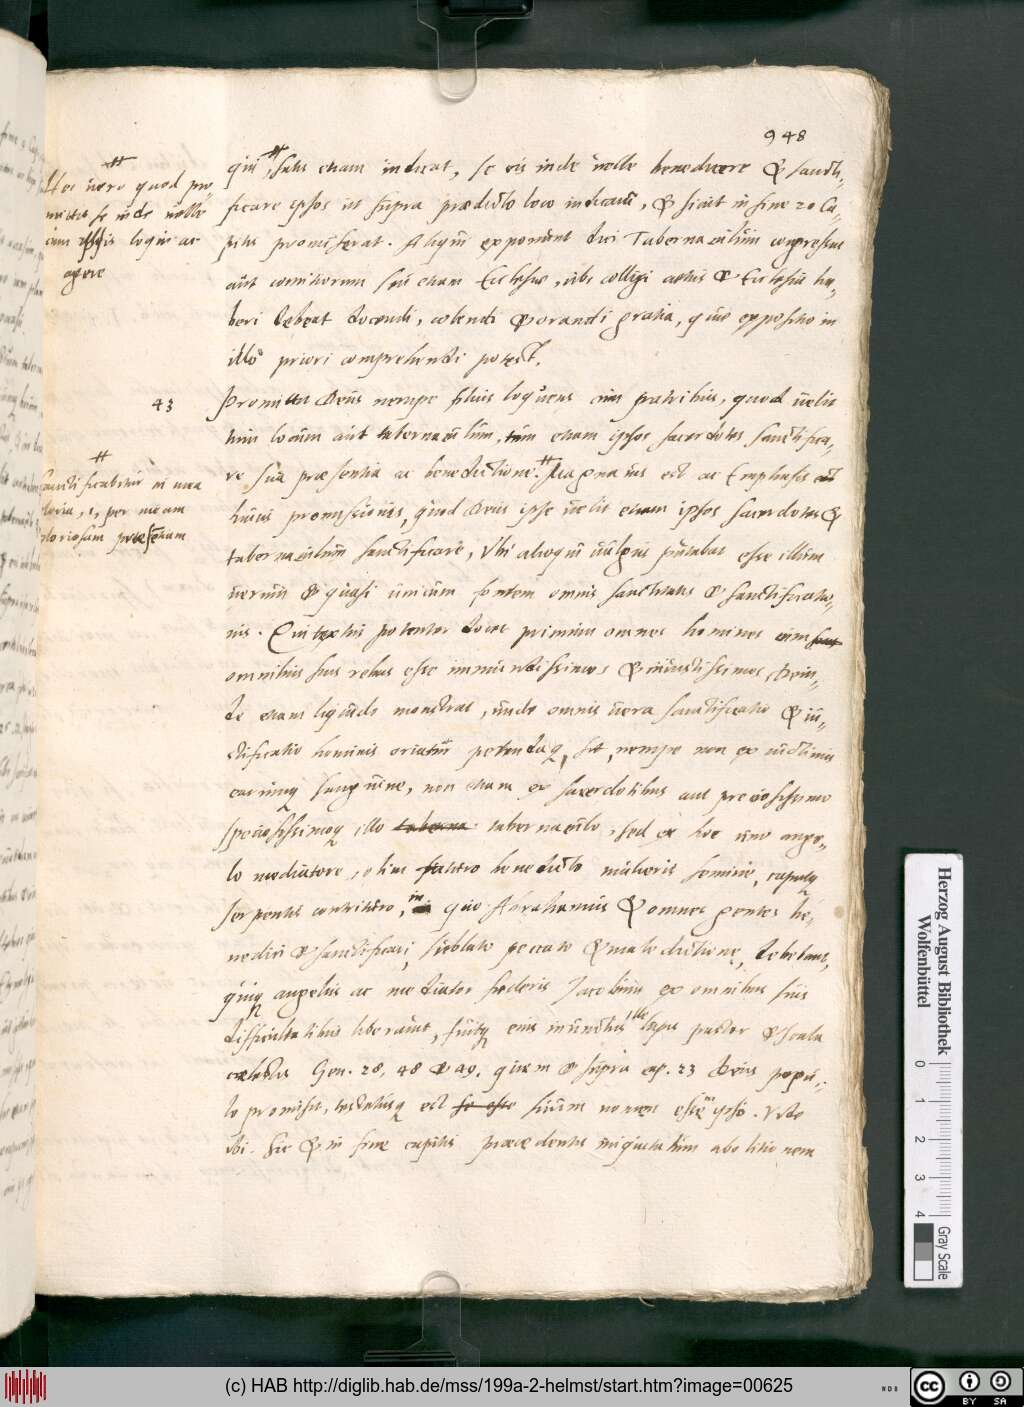 948
Hoc vero quod pro-
mittit se inde velle
cum ipsis loqui ac
agere
qui, satis etiam indicat, se eis inde velle benedicere & sancti-
ficare ipsos ut supra praedicto loco indicavi, & sicut in fine 20 Ca-
pitis promiserat. Aliqui exponunt dici Tabernaculum congressus
aut conventorum seu etiam Ecclesiae, ubi colligi coetus & Ecclesia ha-
beri debeat docendi, colendi & orandi gratia, quae expositio in
illo priori comprehendi potest.
43
Promittit Deus nempe filius loquens cum patribus, quod velit
tum locum aut tabernaculum, tum etiam ipsos sacerdotes sanctifica-
re sua praesentia ac benedictione. Magna vis est ac Emphasis
huius promissionis, quod Deus ipse velit etiam ipsos sacerdotes &
tabernaculum sanctificare, Ubi alioqui vulgus putabat esse illum
verum & quasi unicum fontem omnis sanctitatis & sanctificatio-
nis. potenter docet primum omnes homines cum
omnibus suis rebus esse immundissimos & iniustissimos, Dein-
de etiam liquido monstrat, unde omnis vera sanctificatio & iu-
stificatio hominis oriatur petendaq sit, nempe non ex victimis
earumq sanguine, non etiam ex sacerdotibus aut preciosissimo
speciosissimoq illo taberna tabernaculo, sed ex hoc uno ange-
lo mediatore, olim benedicto mulieris semine, caputq
serpentis contrituro, in quo Abrahamus & omnes gentes be-
nedici & sanctificari, sublato peccato & maledictione, debebant,
quiq angelus ac mediator foederis Iacobum ex omnibus suis
difficultatibus liberavit, fuitq eius inunctus ille lapis pastor & scala
caelestis Gen. 28, 48 & 49. quem & supra cap. 23 Deus popu-
lo promisit, testatusq est se esse suum nomen esse in ipso. Vide
ibi. Sic & in fine capitis praecedentis iniquitatum abolitionem
Sanctificabitur in mea
gloria, i, per meam
gloriosam praesentiam
Herzog August Bibliothek
Wolfenbüttel
0
1
2
3
4
Gray Scale
(c) HAB http://diglib.hab.de/mss/199a-2-helmst/start.htm?image=00625
cc BY SA